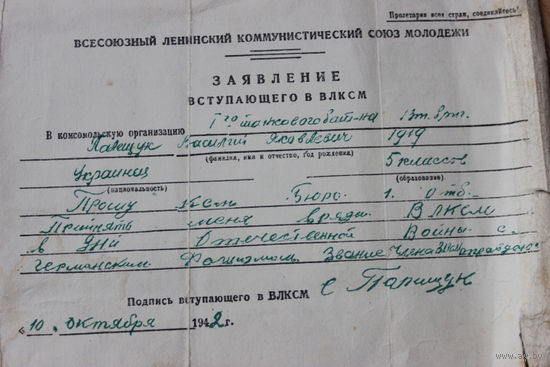 Пролетарии всех стран, соединяйтесь!
ВСЕСОЮЗНЫЙ ЛЕНИНСКИЙ КОММУНИСТИЧЕСКИЙ СОЮЗ МОЛОДЕЖИ
ЗАЯВЛЕНИЕ
ВСТУПАЮЩЕГО В ВЛКСМ
В комсомольскую организацию 1го танкового бат-на
Василий Яковлевич 1919
(фамилия, имя и отчество, год рождения)
Украинец 5 классов
(национальность) (образование)
Прошу Бюро 1. Отб.
Принять меня в ряды ВЛКСМ
в дни Отечественной Войны с
германским Фашизмом Звание Члена
Подпись вступающего в ВЛКСМ
«10. октября 1942 г.
www.ay.by